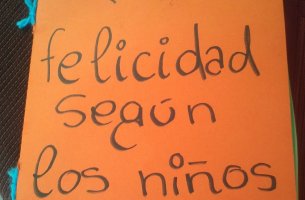 felicidad
según
los niños